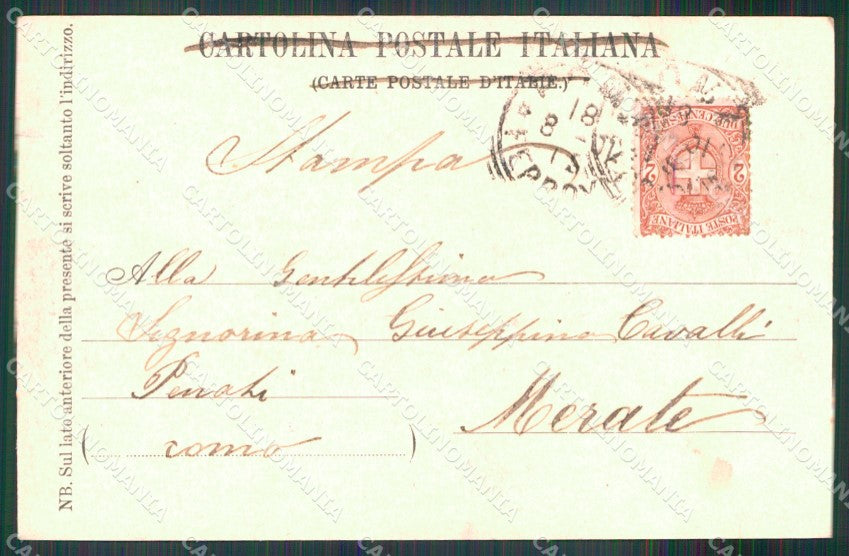 CARTOLINA POSTALE ITALIANA
(CARTE POSTALE D'ITALIE.)
NB. Sul lato anteriore della presente si scrive soltanto l'indirizzo.
18
8
POSTE ITALIANE
2
2
Stampa
Alla Gentilissima
Signorina Giuseppina Cavalli
Penati
Merate
( como )
CARTOLINOMANIA